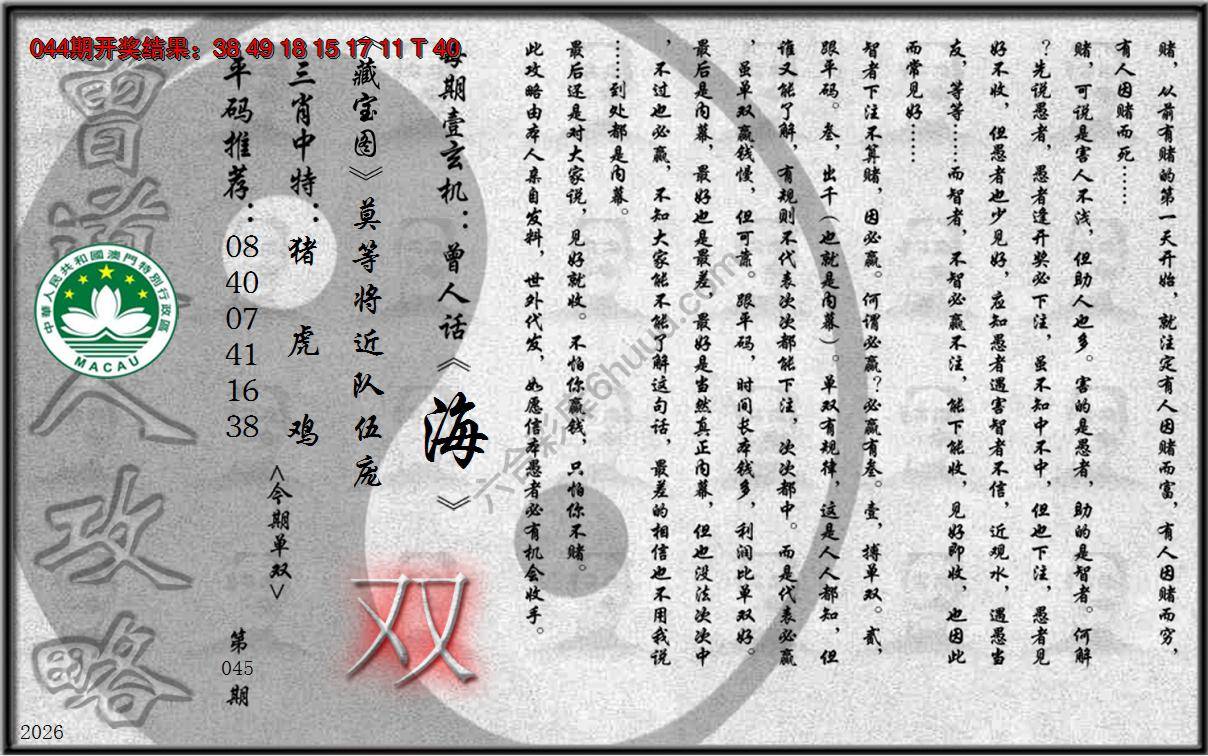 044期开奖结果：38 49 18 15 17 11 T 40
赌，从前有赌的第一天开始，就注定有人因赌而富，有人因赌而穷，
有人因赌而死……
赌，可说是害人不浅，但助人也多。害的是愚者，助的是智者。何解
？先说愚者，愚者逢开奖必下注，虽不知中不中，但也下注，愚者见
好不收，但愚者也少见好，应知愚者遇害智者不信，近观水，遇愚当
友，等等……而智者，不智必赢不注，能下能收，见好即收，也因此
而常见好……
智者下注不算赌，因必赢。何谓必赢？必赢有叁。壹，搏单双。贰，
跟平码。叁，出千（也就是内幕）。单双有规律，这是人人都知，但
谁又能了解，有规则不代表次次都能下注，次次都中。而是代表必赢
，虽单双赢钱慢，但可靠。跟平码，时间长本钱多，利润比单双好。
最后是内幕，最好也是最差，最好是当然真正内幕，但也没法次次中
，不过也必赢，不知大家能不能了解这句话，最差的相信也不用我说
……到处都是内幕。
最后还是对大家说，见好就收。不怕你赢钱，只怕你不赌。
此攻略由本人亲自发料，世外代发，如愿信本愚者必有机会收手。
每期壹玄机：曾人话《海》
《藏宝图》莫等将近队伍庞
双
三肖中特：猪 虎 鸡
<今期单双>
平码推荐：
08
40
07
41
16
38
第
045
期
曾道人攻略
中華人民共和國澳門特別行政區
MACAU
六合彩库6huuu.com
2026